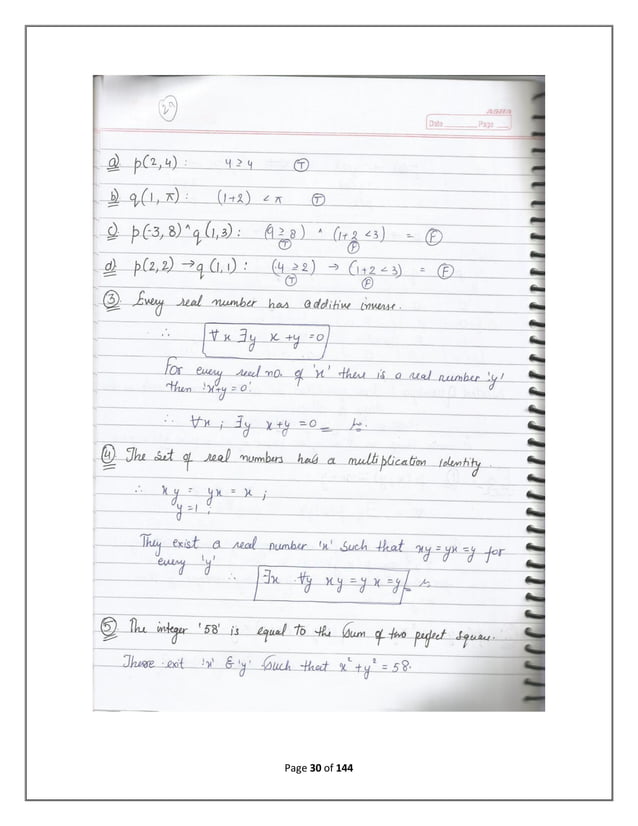 29
Date Page
a) p(2,4) : 4 ≥ 4 (T)
b) q(1, π) : (1+2) < π (T)
c) p(-3, 8) ^ q(1,3) : (9 ≥ 8) ^ (1+2 <3) = (F)
(T) (F)
d) p(2,2) → q(1,1) : (4 ≥ 2) → (1+2 < 3) = (F)
(T) (F)
(3) Every real number has additive inverse.
∴ ∀x ∃y x+y =0
For every real no. of 'x' there is a real number 'y'
then 'x+y = 0'.
∴ ∀x ; ∃y x+y = 0
(4) The set of real numbers has a multiplication identity.
∴ xy = yx = x ;
y=1 ;
They exist a real number 'x' such that xy=yx=y for
every 'y'
∴ ∃x ∀y xy=yx=y
(5) The integer '58' is equal to the sum of two perfect square.
There exit 'x' & 'y' such that x²+y² = 58.
Page 30 of 144